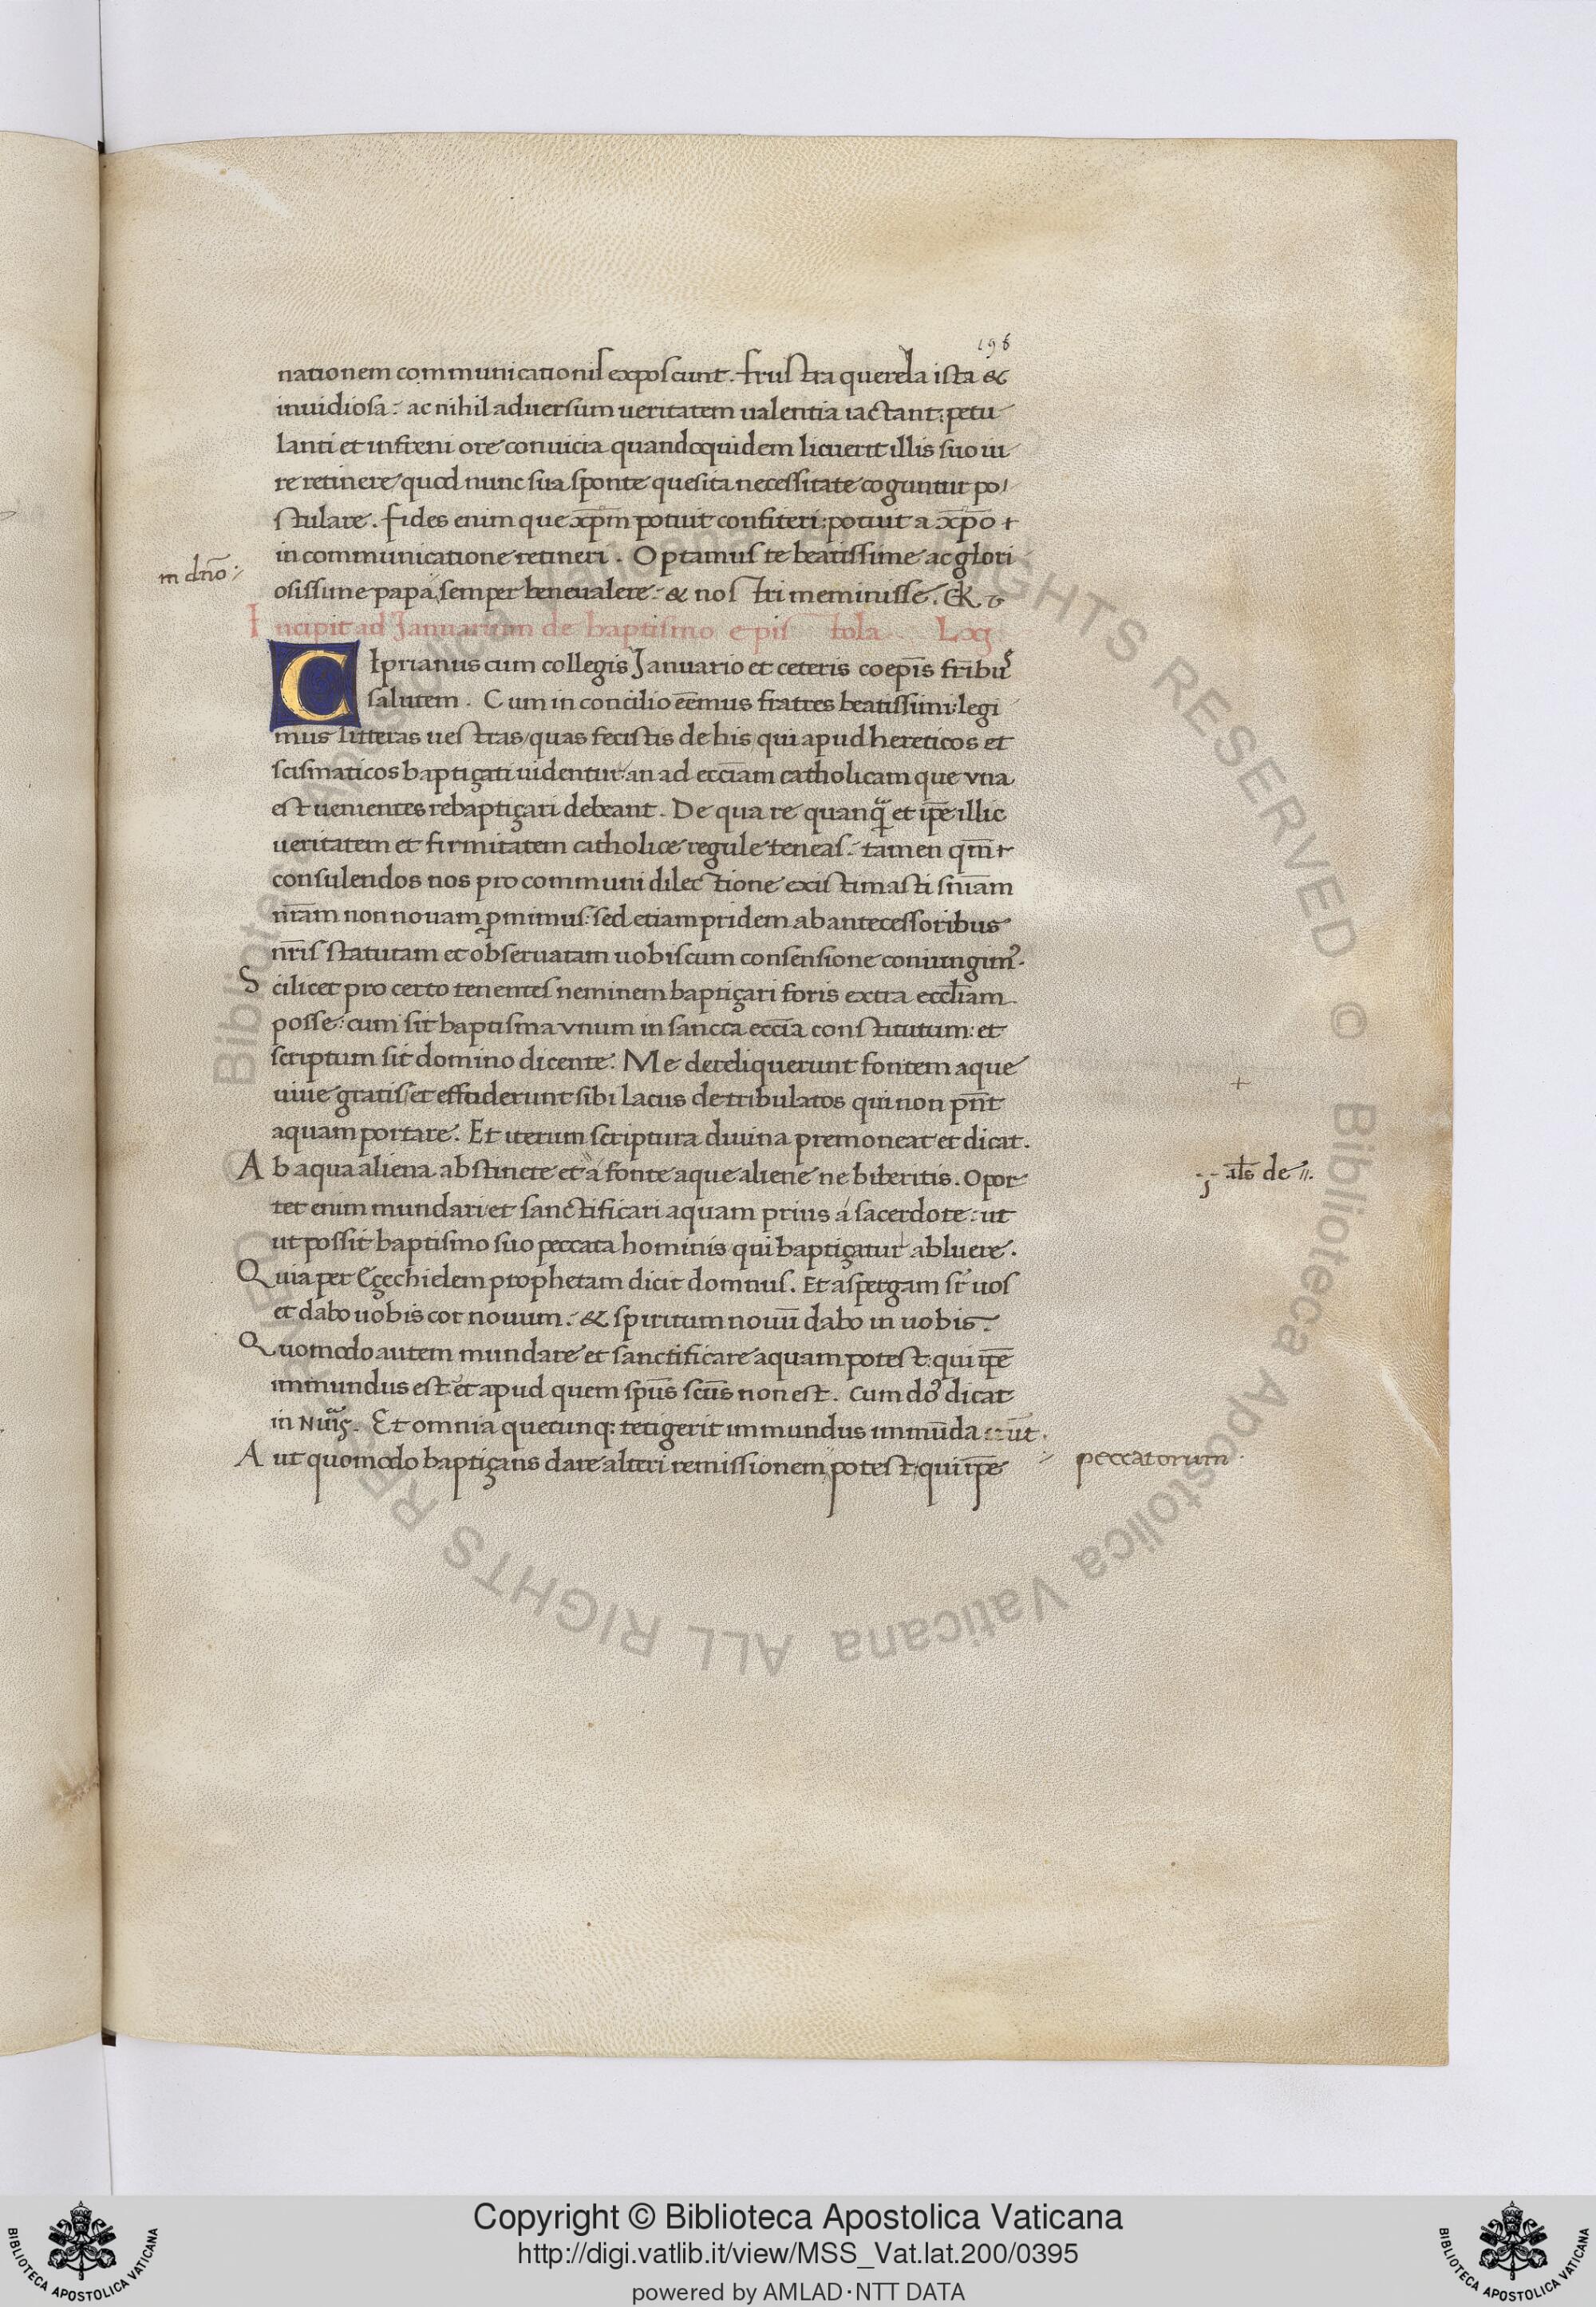 196
nationem communicationis exposcunt. frustra querela ista &
inuidiosa: ac nihil aduersum ueritatem ualentia iactant: petu
lanti et infreni ore conuicia quandoquidem licuerit illis suo iu
re retinere quod nunc sua sponte quesita necessitate coguntur po
stulare. fides enim que xp̄m potuit confiteri: potuit a xp̄o
in communicatione retineri. Optamus te beatissime ac glori
in dn̄o
osissime papa semper bene ualere: & nostri meminisse.
Incipit ad Januarium de baptismo epistola Lxǫ
Ciprianus cum collegis Januario et ceteris coep̄is fr̄ibus
salutem. Cum in concilio ee̅mus fratres beatissimi: legi
mus litteras uestras quas fecistis de his qui apud hereticos et
scismaticos baptiçati uidentur an ad ecc̄iam catholicam que vna
est uenientes rebaptiçari debeant. De qua re quanq̄ et ip̄e illic
ueritatem et firmitatem catholice regule teneas: tamen qm̄
consulendos nos pro communi dilectione existimasti sn̄iam
nr̄am non nouam ꝓmimus: sed etiam pridem ab antecessoribus
nr̄is statutam et obseruatam uobiscum consensione coniungim⁹.
Scilicet pro certo tenentes neminem baptiçari foris extra eccl̄iam
posse: cum sit baptisma vnum in sancta ecc̄ia constitutum: et
scriptum sit domino dicente: Me dereliquerunt fontem aque
uiue gratis et effuderunt sibi lacus detribulatos qui non pn̄t
aquam portare. Et iterum scriptura diuina premoneat et dicat.
Ab aqua aliena abstinete et á fonte aque aliene ne biberitis. Opor
tet enim mundari et sanctificari aquam prius á sacerdote: ut
ut possit baptismo suo peccata hominis qui baptiçatur abluere.
Quia per Eçechielem prophetam dicit domnus. Et aspergam sr̄ uos
et dabo uobis cor nouum: & spiritum nouū dabo in uobis.
Quomodo autem mundare et sanctificare aquam potest: qui ip̄e
immundus est: et apud quem sp̄us sc̄us non est. Cum do⁹ dicat
in Et omnia quecunq: tetigerit immundus immūda
Aut quomodo baptiçans dare alteri remissionem potest qui ip̄e
peccatorum
Copyright © Biblioteca Apostolica Vaticana
http://digi.vatlib.it/view/MSS_Vat.lat.200/0395
powered by AMLAD·NTT DATA
BIBLIOTECA APOSTOLICA VATICANA
BIBLIOTECA APOSTOLICA VATICANA
© Biblioteca Apostolica Vaticana ALL RIGHTS RESERVED © Biblioteca Apostolica Vaticana ALL RIGHTS RESERVED